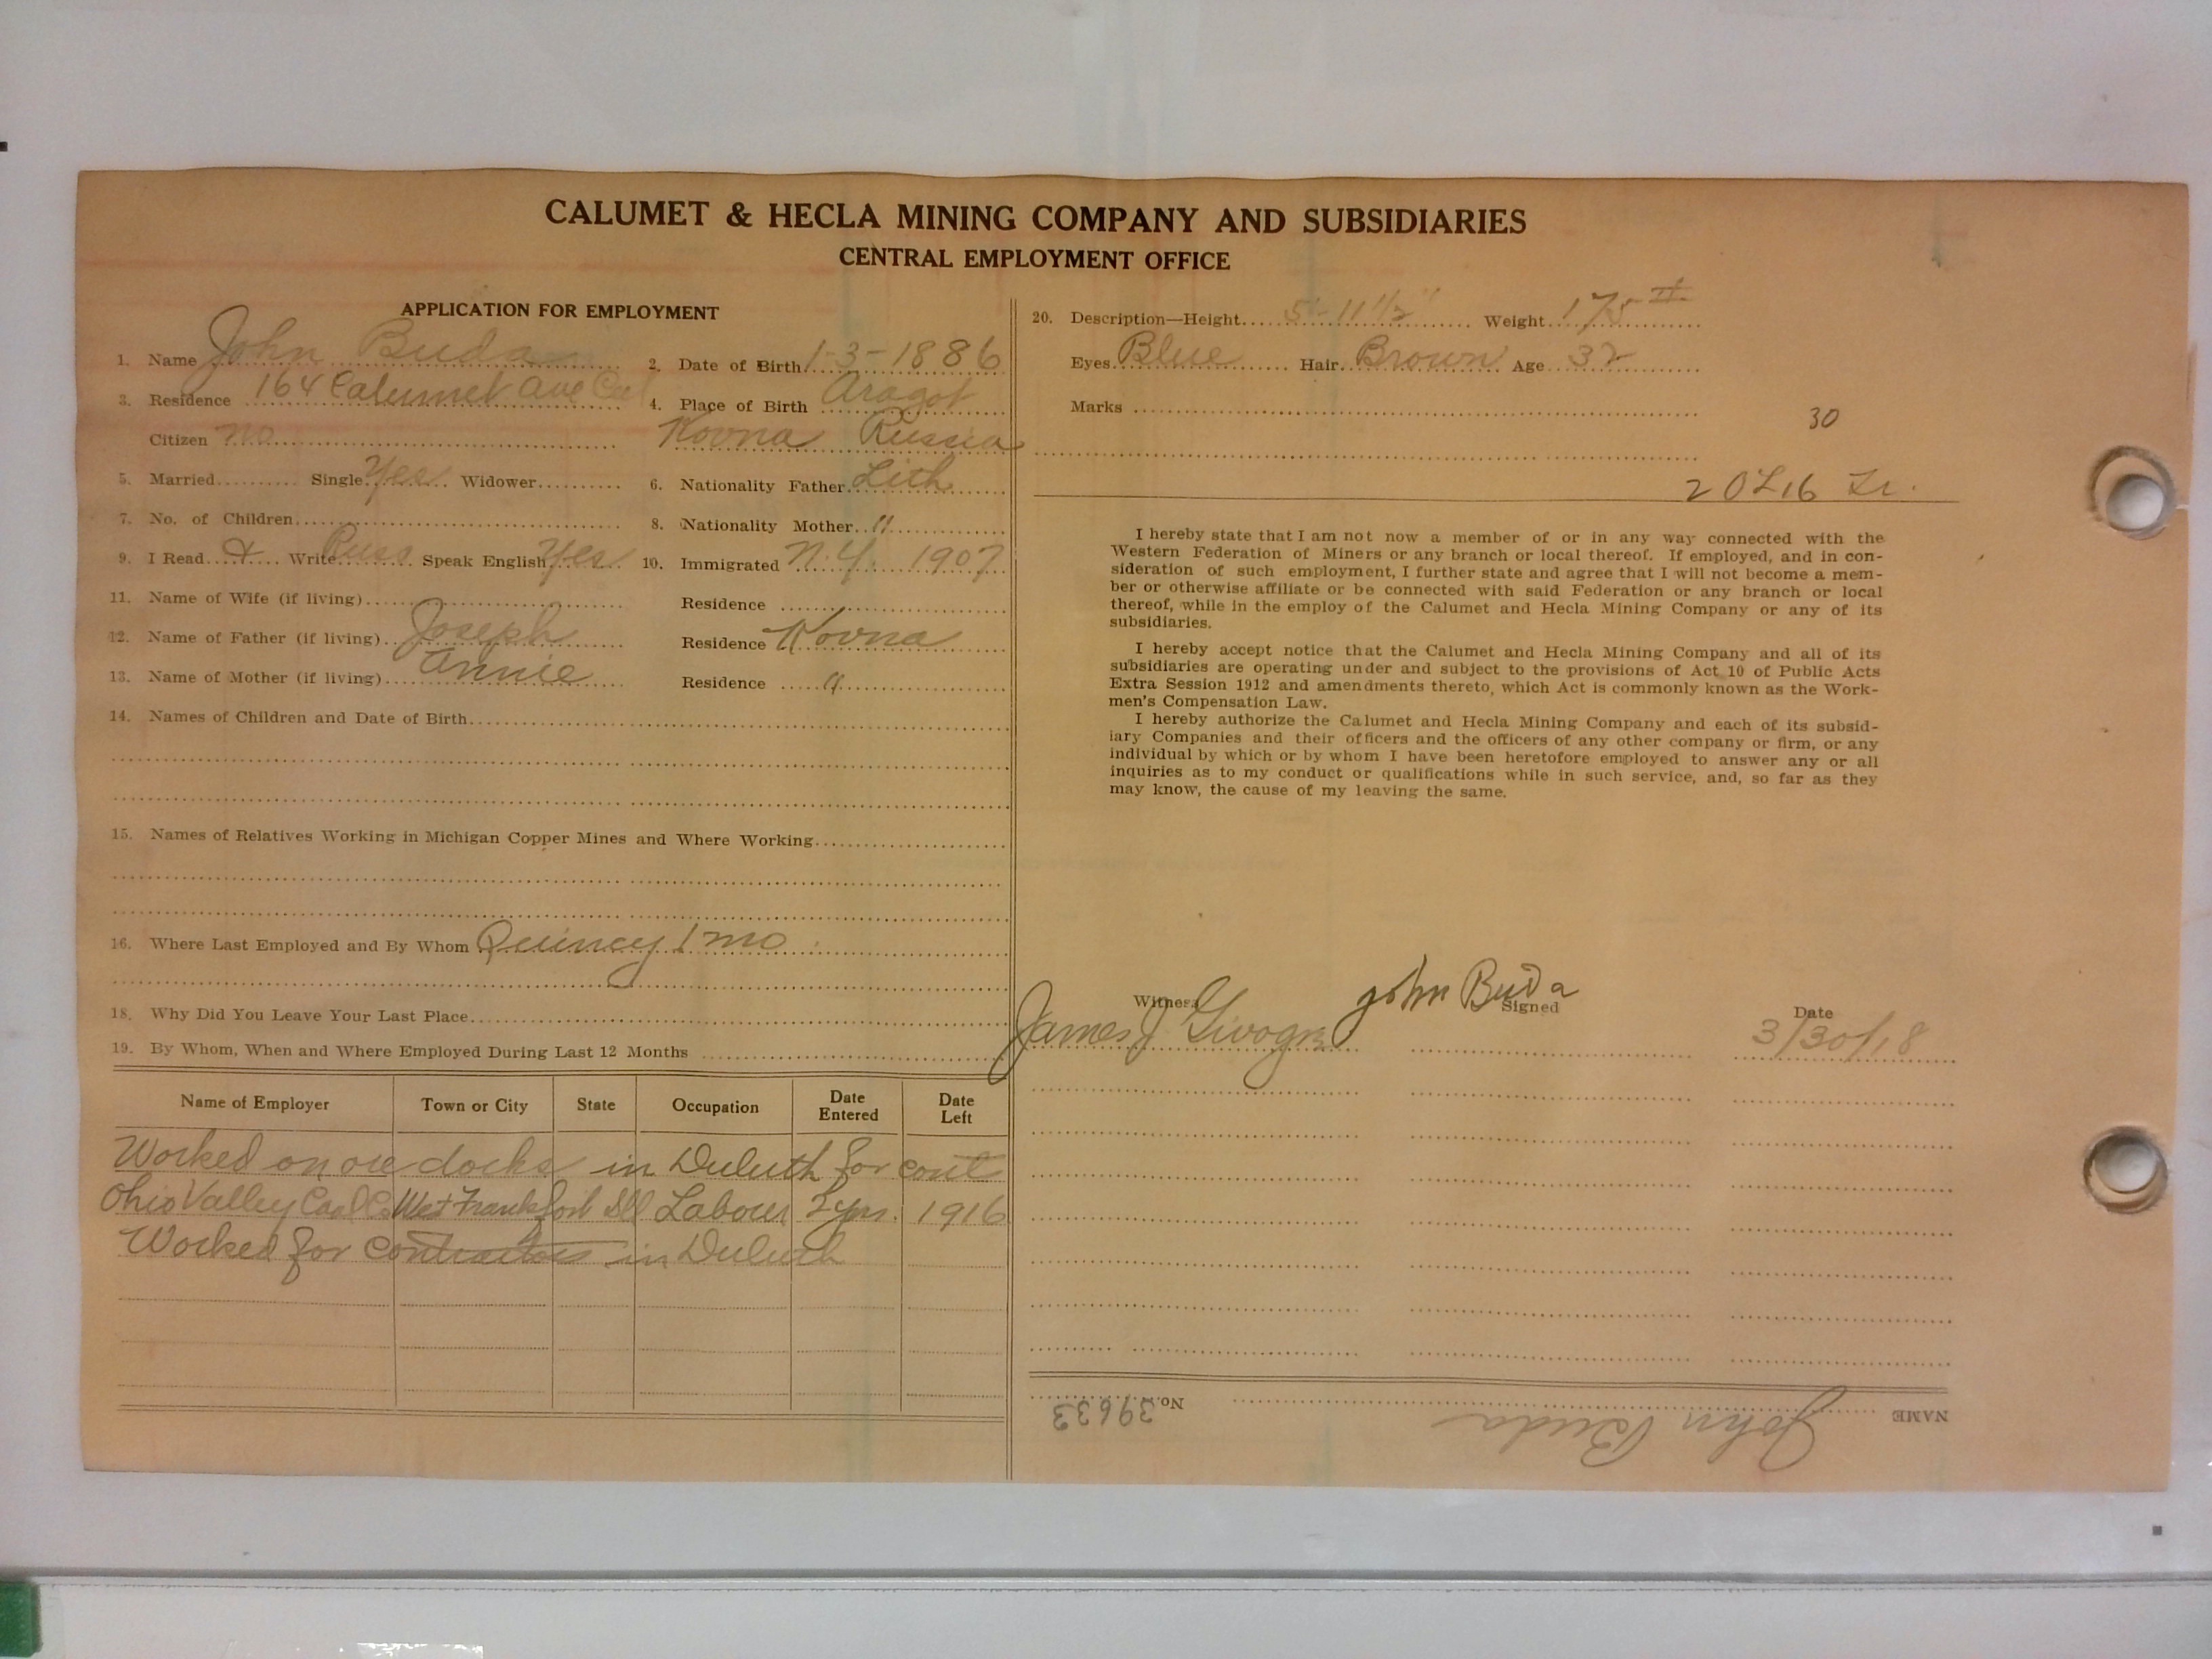 CALUMET & HECLA MINING COMPANY AND SUBSIDIARIES
CENTRAL EMPLOYMENT OFFICE
APPLICATION FOR EMPLOYMENT
1. Name John Buda
2. Date of Birth 1-3-1886
3. Residence 164 Calumet Ave Cal
4. Place of Birth Aragot
Citizen no
Kovna Russia
5. Married Single Yes Widower
6. Nationality Father Lith
7. No. of Children
8. Nationality Mother "
9. I Read & Write Russ Speak English Yes
10. Immigrated N.Y. 1907
11. Name of Wife (if living) Residence
12. Name of Father (if living) Joseph Residence Kovna
13. Name of Mother (if living) Annie Residence "
14. Names of Children and Date of Birth
15. Names of Relatives Working in Michigan Copper Mines and Where Working
16. Where Last Employed and By Whom Quincy 1 mo
18. Why Did You Leave Your Last Place
19. By Whom, When and Where Employed During Last 12 Months
Name of Employer Town or City State Occupation Date Entered Date Left
Worked on ore docks in Duluth for cont
Ohio Valley Coal Co West Frankfort Ill Labour 2 yrs. 1916
Worked for contractors in Duluth
20. Description—Height 5'-11 1/2" Weight 175 #
Eyes Blue Hair Brown Age 32
Marks
30
2 O L 16 Tr.
I hereby state that I am not now a member of or in any way connected with the
Western Federation of Miners or any branch or local thereof. If employed, and in con-
sideration of such employment, I further state and agree that I will not become a mem-
ber or otherwise affiliate or be connected with said Federation or any branch or local
thereof, while in the employ of the Calumet and Hecla Mining Company or any of its
subsidiaries.
I hereby accept notice that the Calumet and Hecla Mining Company and all of its
subsidiaries are operating under and subject to the provisions of Act 10 of Public Acts
Extra Session 1912 and amendments thereto, which Act is commonly known as the Work-
men's Compensation Law.
I hereby authorize the Calumet and Hecla Mining Company and each of its subsid-
iary Companies and their officers and the officers of any other company or firm, or any
individual by which or by whom I have been heretofore employed to answer any or all
inquiries as to my conduct or qualifications while in such service, and, so far as they
may know, the cause of my leaving the same.
Witness Signed Date
James J John Buda 3/30/18
NAME John Buda No. 39633